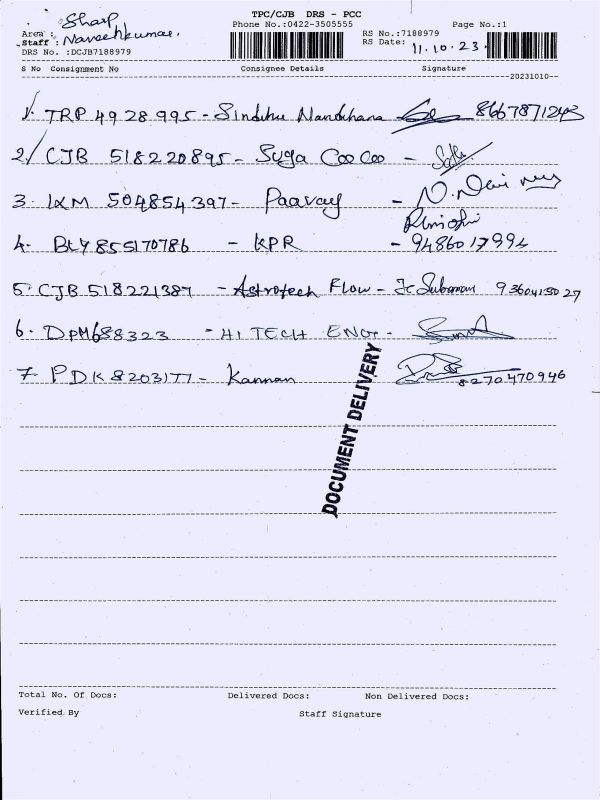 TPC/CJB DRS - PCC
Phone No.:0422-3505555 Page No.:1
Area : Sharp
Staff : Naveenkumar.
RS No.:7188979
RS Date: 11.10.23
DRS No. :DCJB7188979
S No Consignment No Consignee Details Signature
20231010--
1. TRP 4928995 - Sindhu Nandhana 8667871243
2. CJB 518220895 - Suga Coo Coo -
3. IXM 504854397 - Paavay -
4. BLY 855170786 - KPR - 9486017994
5. CJB 518221387 - Astrotech Flow - 9360415027
6. DPM 688323 - HI TECH ENG. -
7. PDK 8203177 - Kannan 8270470946
DOCUMENT DELIVERY
Total No. Of Docs: Delivered Docs: Non Delivered Docs:
Verified By Staff Signature